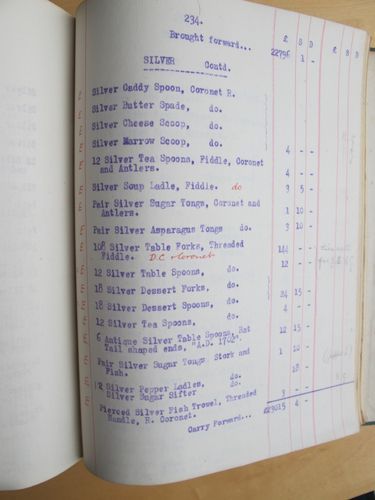 234.
£ S D £ S D
Brought forward... 22796 1 -
SILVER Contd.
E Silver Caddy Spoon, Coronet R.
E Silver Butter Spade, do.
E Silver Cheese Scoop, do.
E Silver Marrow Scoop, do. 4 - -
E 12 Silver Tea Spoons, Fiddle, Coronet
and Antlers. 4 - -
E Silver Soup Ladle, Fiddle. do 3 5 -
E Pair Silver Sugar Tongs, Coronet and
Antlers. 1 10 -
E Pair Silver Asparagus Tongs do. 3 10 -
E 108 Silver Table Forks, Threaded
Fiddle. D.C & Coronet 144 - -
E 12 Silver Table Spoons, do. 12 - -
E 18 Silver Dessert Forks, do.
E 18 Silver Dessert Spoons, do. 24 15 -
E 12 Silver Tea Spoons, do. 4 - -
E 6 Antique Silver Table Spoons, Rat
Tail shaped ends, "A.D. 1702". 12 15 -
E Pair Silver Sugar Tongs Stork and
Fish. 1 10 -
E 12 Silver Pepper Ladles, do. 18 -
E Silver Sugar Sifter do.
E Pierced Silver Fish Trowel, Threaded
Handle, R. Coronet. 3 - -
Carry Forward... £23015 4 -